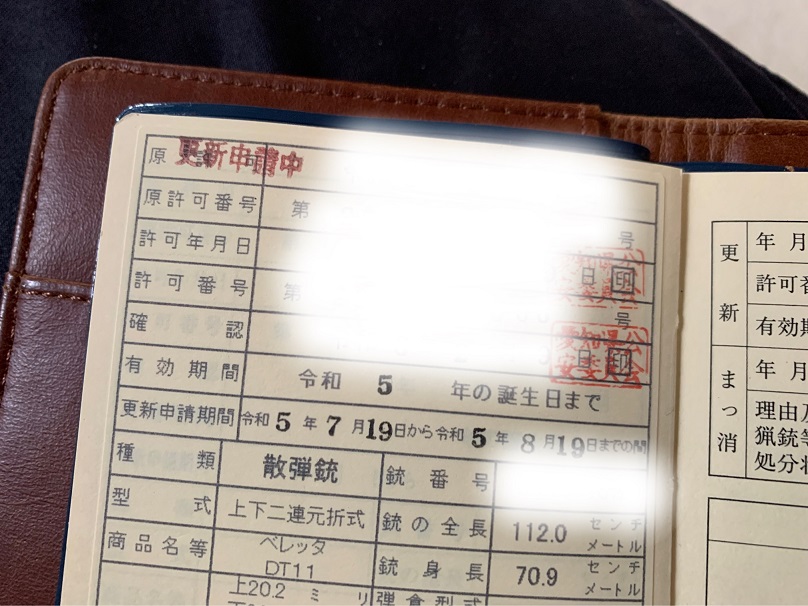 更新申請中
原許可
原許可番号 第 号
許可年月日 日 印
許可番号 第 号
確認 日 印
愛知県公安委員会
有効期間 令和 5 年の誕生日まで
更新申請期間 令和 5 年 7 月 19 日から令和 5 年 8 月 19 日までの間
種類 散弾銃 銃番号
型式 上下二連元折式 銃の全長 112.0 センチメートル
商品名等 ベレッタ DT11 銃身長 70.9 センチメートル
上20.2 ミリ 弾倉型式
更新
年月
許可番
有効期
まっ消
年月
理由及
猟銃等
処分状